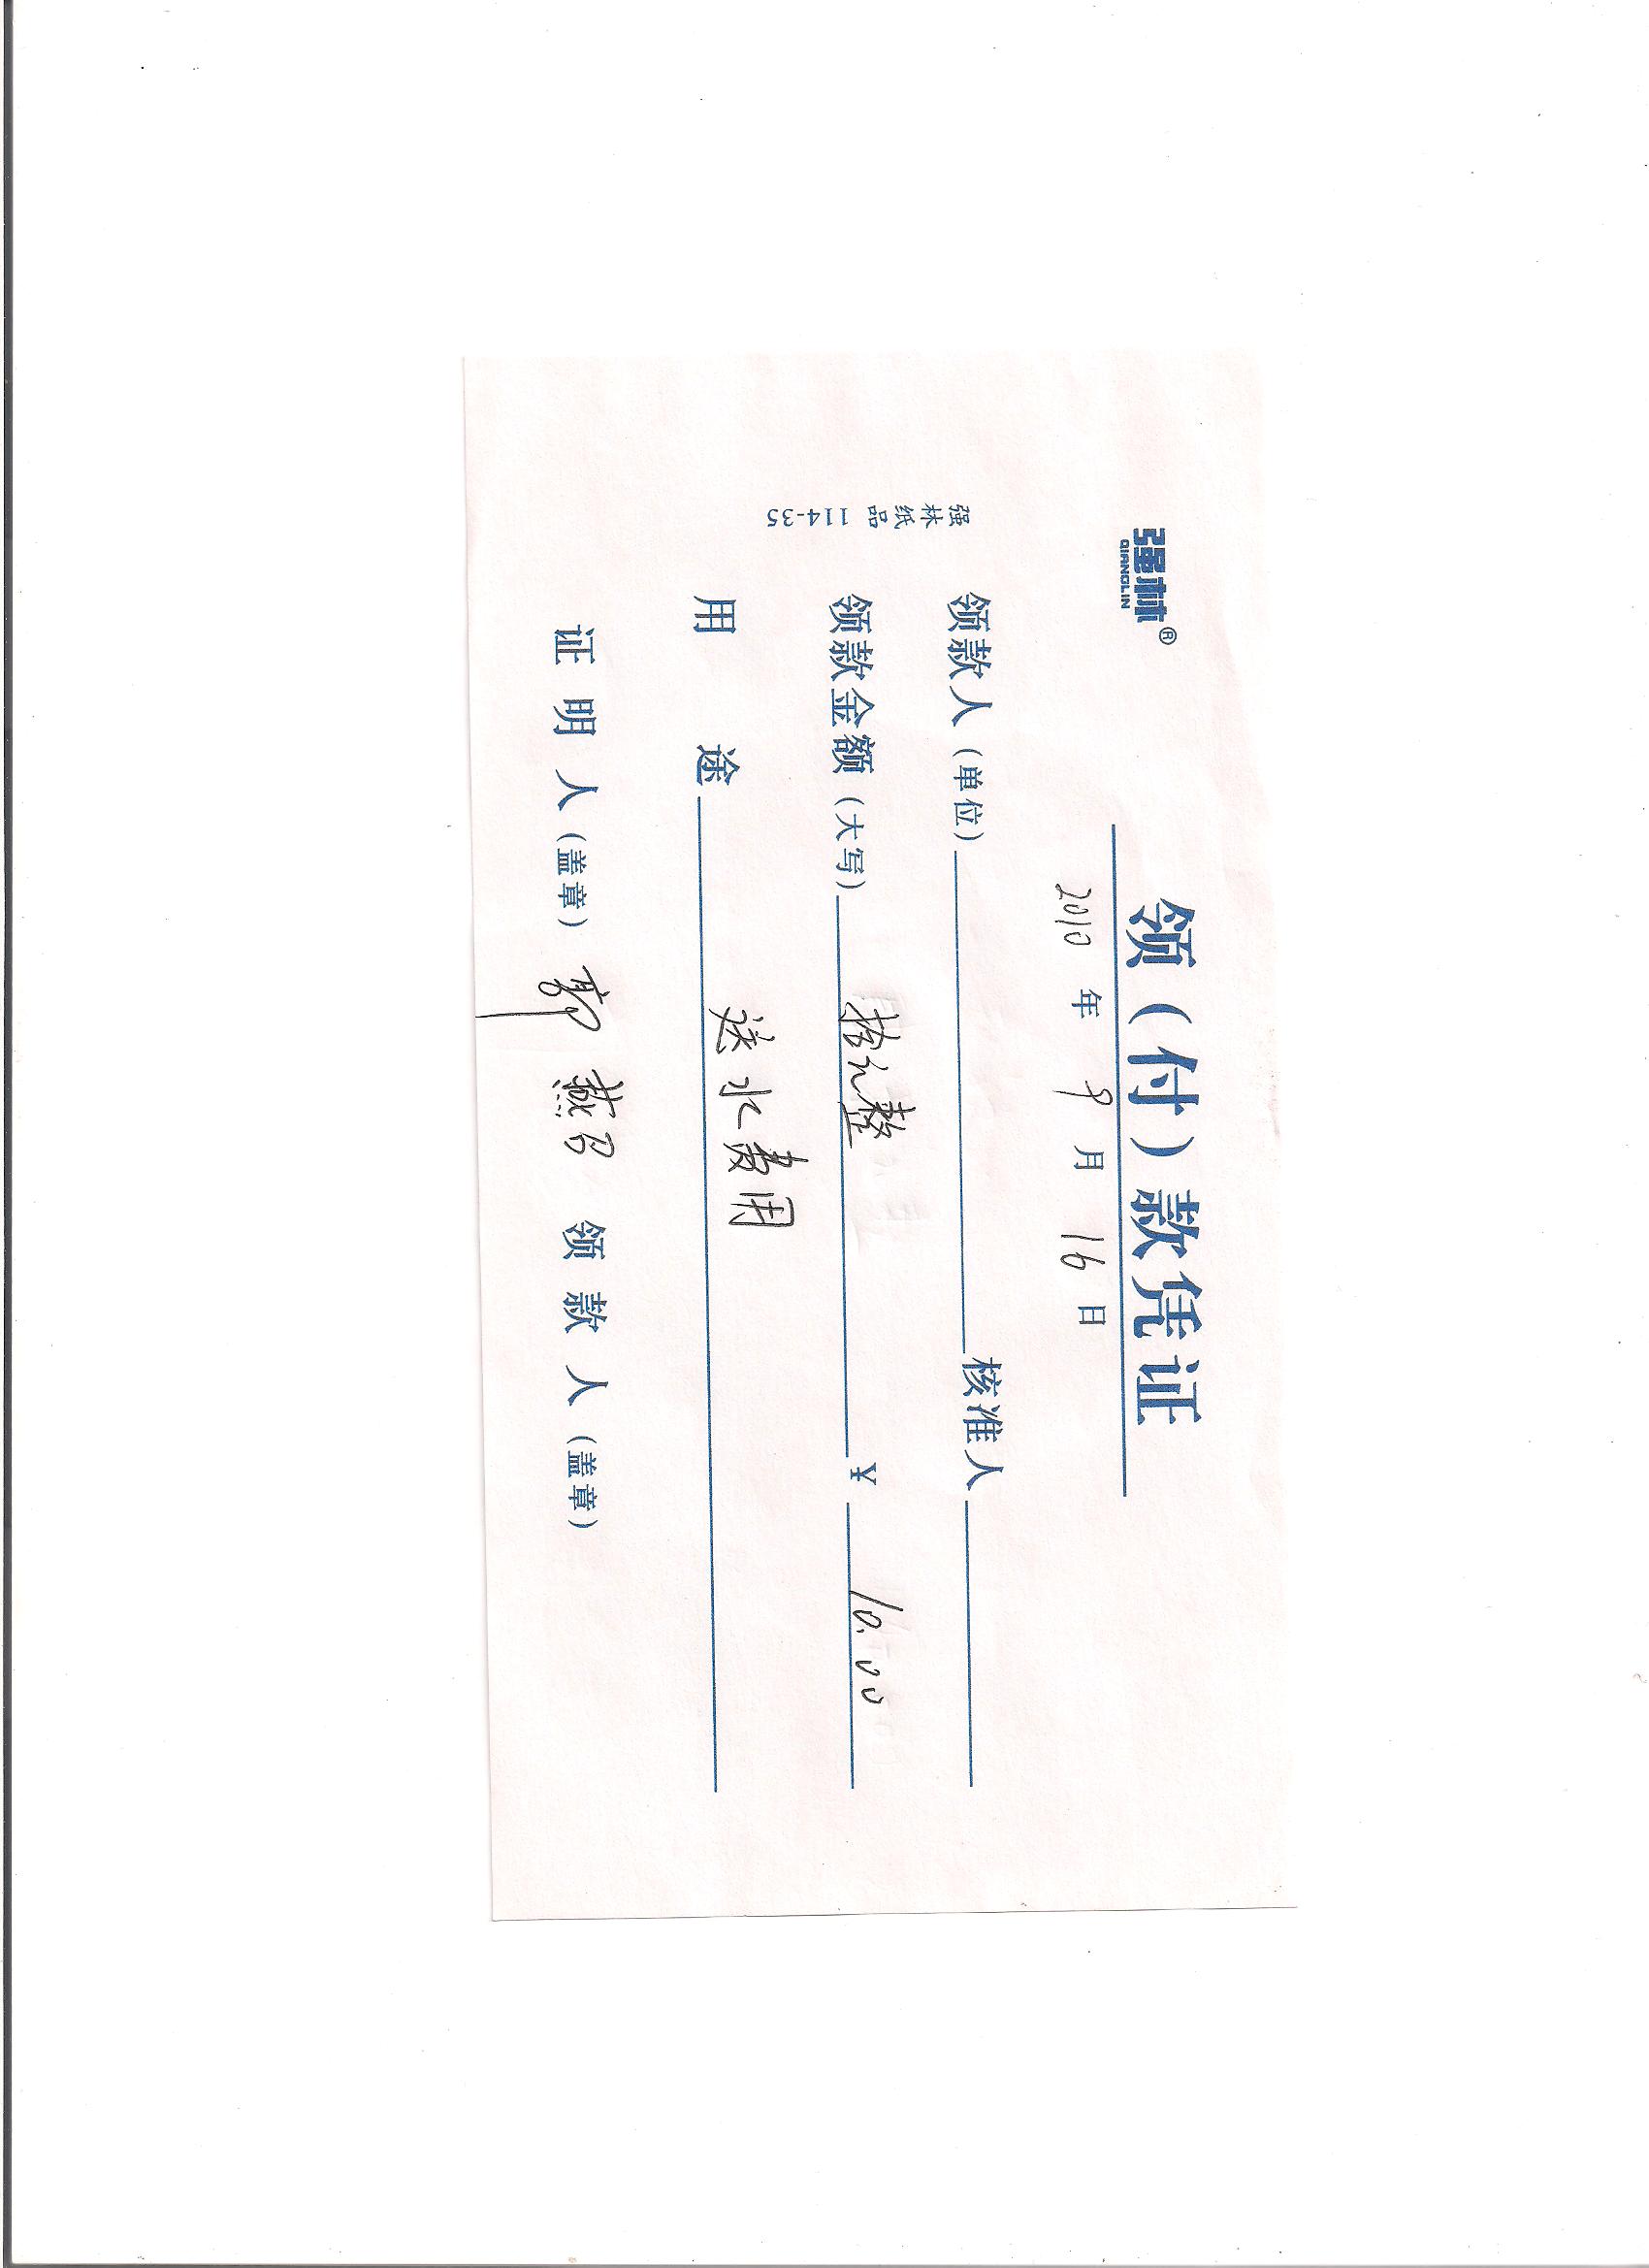 强林®
QIANGLIN
领（付）款凭证
2010 年 9 月 16 日
领款人（单位） 核准人
领款金额（大写） 拾元整 ¥ 10.00
用途 送水费用
证明人（盖章） 郭燕召 领款人（盖章）
强林纸品 114-35